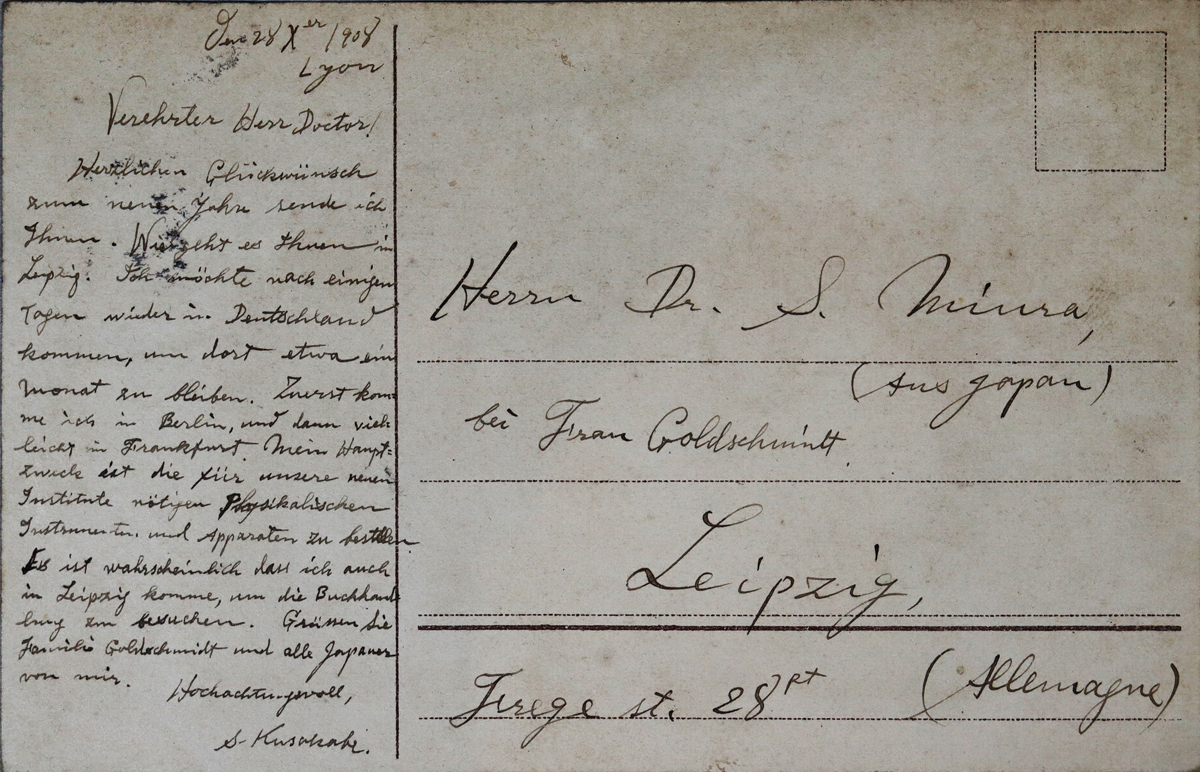 Den 28 Xer 1908
Lyon
Verehrter Herr Doctor!
Herzlichen Glückwünsch
zum neuen Jahre sende ich
Ihnen. Wie geht es Ihnen in
Leipzig. Ich möchte nach einigen
Tagen wieder in Deutschland
kommen, um dort etwa ein
Monat zu bleiben. Zuerst kom-
me ich in Berlin, und dann viel-
leicht in Frankfurt. Mein Haupt-
zweck ist die für unsere neuen
Institute nötigen Physikalischen
Instrumenten und Apparaten zu bestellen
Es ist wahrscheinlich dass ich auch
in Leipzig komme, um die Buchhand
lung zu besuchen. Grüssen Sie
Familie Goldschmidt und alle Japaner
von mir.
Hochachtungsvoll,
S. Kusakabe.
Herrn Dr. S. Miura,
(Aus Japan)
bei Frau Goldschmidt.
Leipzig,
Frege st. 28 pt
(Allemagne)